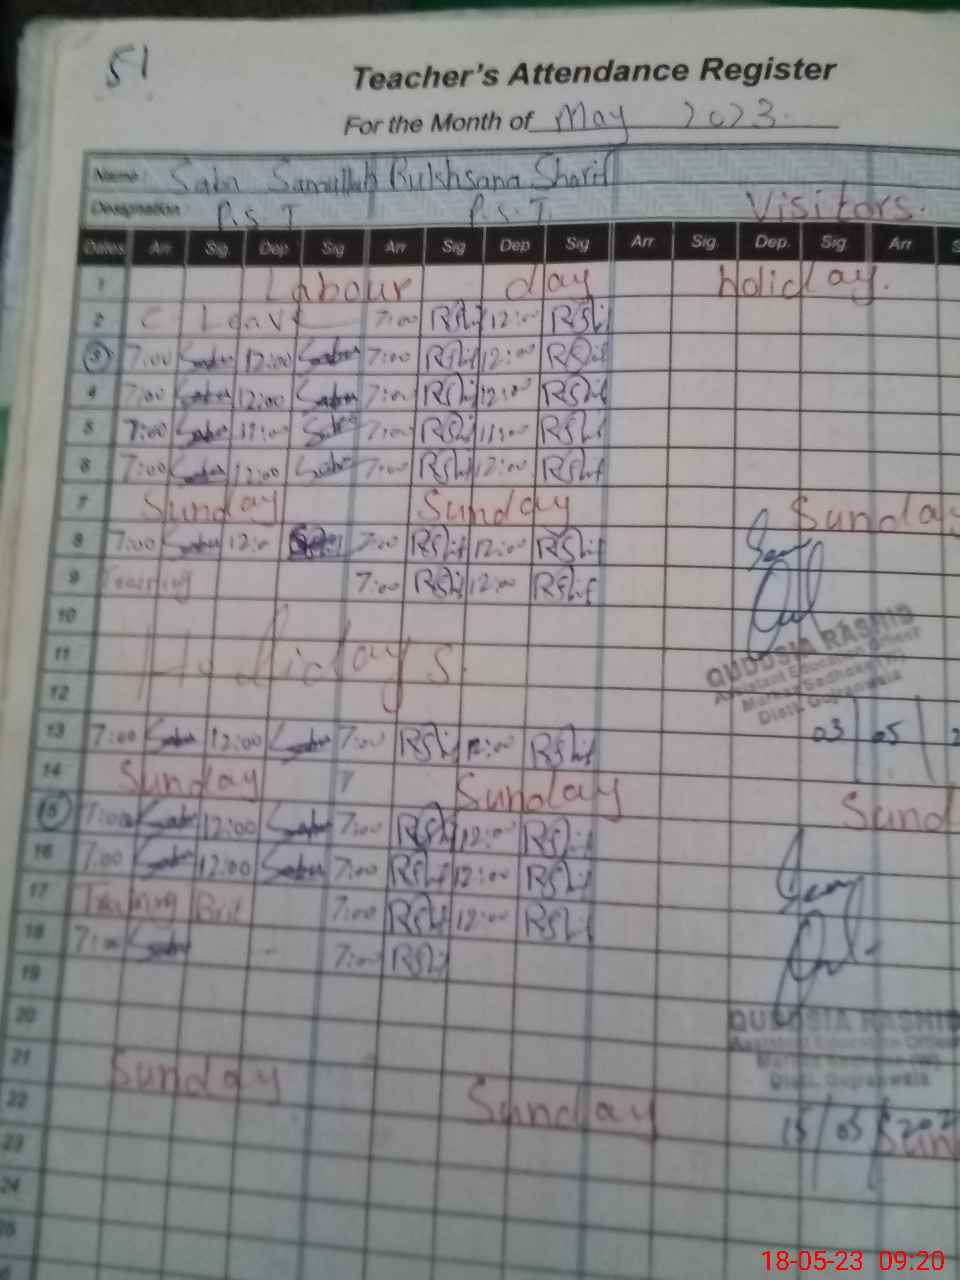 51
Teacher's Attendance Register
For the Month of May 2023.
Name: Saba Samiullah Rukhsana Sharif
Designation: P.S.T P.S.T. Visitors.
Dates Arr Sig. Dep Sig Arr Sig Dep Sig Arr Sig. Dep. Sig Arr
1 Labour day holiday.
2 C Leave 7:00 RShif 12:00 RShif
3 7:00 Saba 12:00 Saba 7:00 RShif 12:00 RShif
4 7:00 Saba 12:00 Saba 7:00 RShif 12:00 RShif
5 7:00 Saba 11:00 Saba 7:00 RShif 11:00 RShif
6 7:00 Saba 12:00 Saba 7:00 RShif 12:00 RShif
7 Sunday Sunday Sunday
8 7:00 Saba 12:0 7:00 RShif 12:00 RShif
9 Training 7:00 RShif 12:00 RShif
10
11 Holidays.
12
QUDOSIA RASHID
Assistant Education Officer
Markaz Sadhoke (W)
Distt. Gujranwala
03/05/2
13 7:00 Saba 12:00 Saba 7:00 RShif 12:00 RShif
14 Sunday 7 Sunday Sund
15 7:00 Saba 12:00 Saba 7:00 RShif 12:00 RShif
16 7:00 Saba 12:00 Saba 7:00 RShif 12:00 RShif
17 Training 7:00 RShif 12:00 RShif
18 7:00 Saba 7:00 RShif
19
20
QUDOSIA RASHID
Assistant Education Officer
Distt. Gujranwala
21 Sunday Sunday Sun
22
15/05/202
23
24
25
18-05-23 09:20